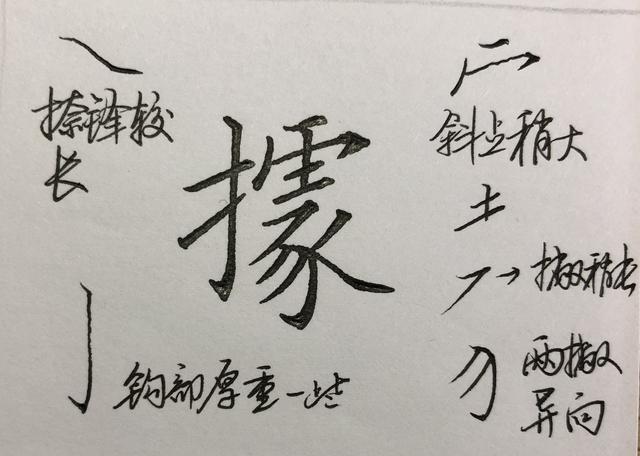 捺锋较
长
據
钩部厚重一些
斜点稍大
土
撇稍长
两撇
异向